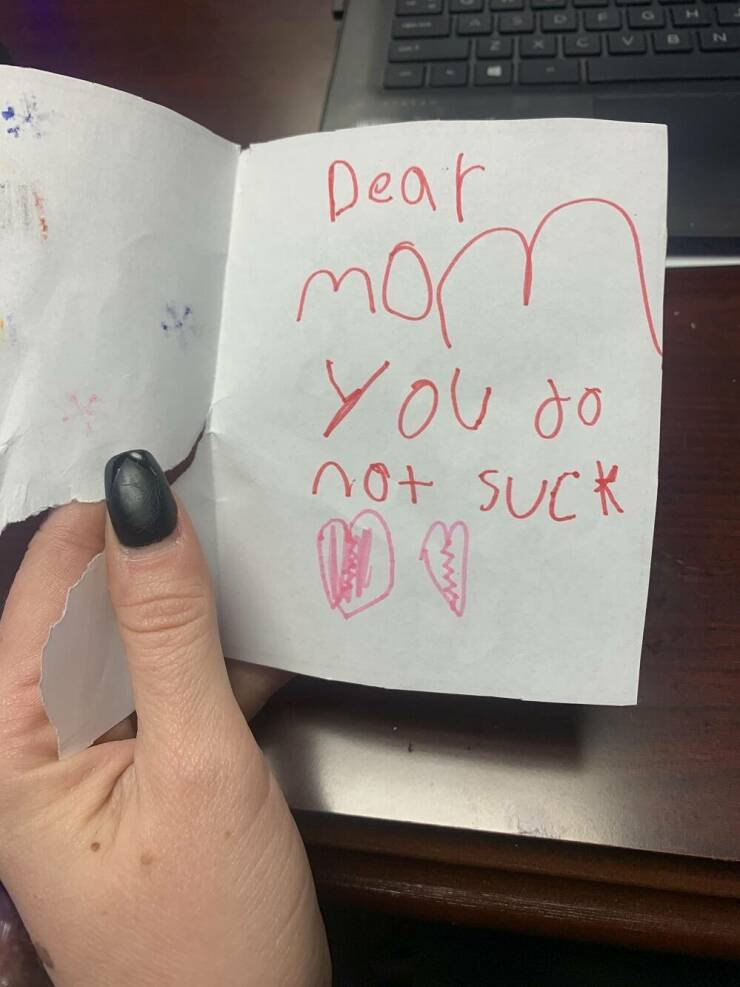 A S D F G H
Z X C V B N
Dear
mom
You do
not suck